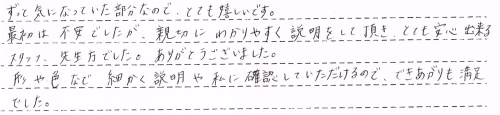 ずっと気になっていた部分なので、とても嬉しいです。
最初は不安でしたが、親切にわかりやすく説明をして頂き、とても安心出来る
スタッフ、先生方でした。ありがとうございました。
形や色など細かく説明や私に確認していただけるので、できあがりも満足
でした。